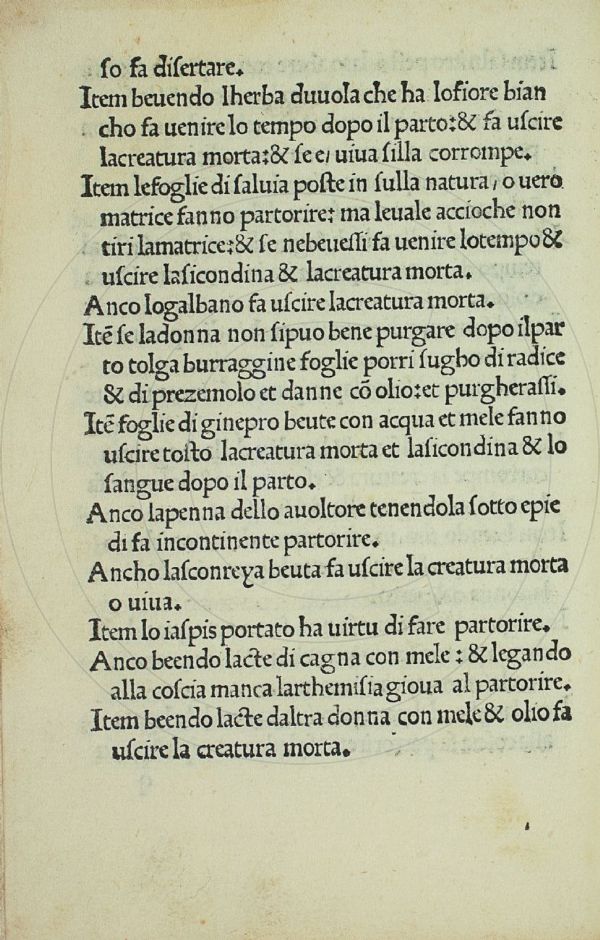 ſo fa diſertare.
Item beuendo lherba duuola che ha lofiore bian
cho fa uenire lo tempo dopo il parto:& fa uſcire
lacreatura morta:& ſe e/ uiua ſilla corrompe.
Item lefoglie di ſaluia poſte in ſulla natura/ o uero
matrice fanno partorire: ma leuale accioche non
tiri lamatrice:& ſe nebeueſſi fa uenire lotempo &
uſcire laſicondina & lacreatura morta.
Anco logalbano fa uſcire lacreatura morta.
Itē ſe ladonna non ſipuo bene purgare dopo ilpar
to tolga burraggine foglie porri ſugho di radice
& di prezemolo et danne cō olio:et purgheraſſi.
Itē foglie di ginepro beute con acqua et mele fanno
uſcire toſto lacreatura morta et laſicondina & lo
ſangue dopo il parto.
Anco lapenna dello auoltore tenendola ſotto epie
di fa incontinente partorire.
Ancho laſconreya beuta fa uſcire la creatura morta
o uiua.
Item lo iaſpis portato ha uirtu di fare partorire.
Anco beendo lacte di cagna con mele : & legando
alla coſcia manca larthemiſia gioua al partorire.
Item beendo lacte daltra donna con mele & olio fa
uſcire la creatura morta.